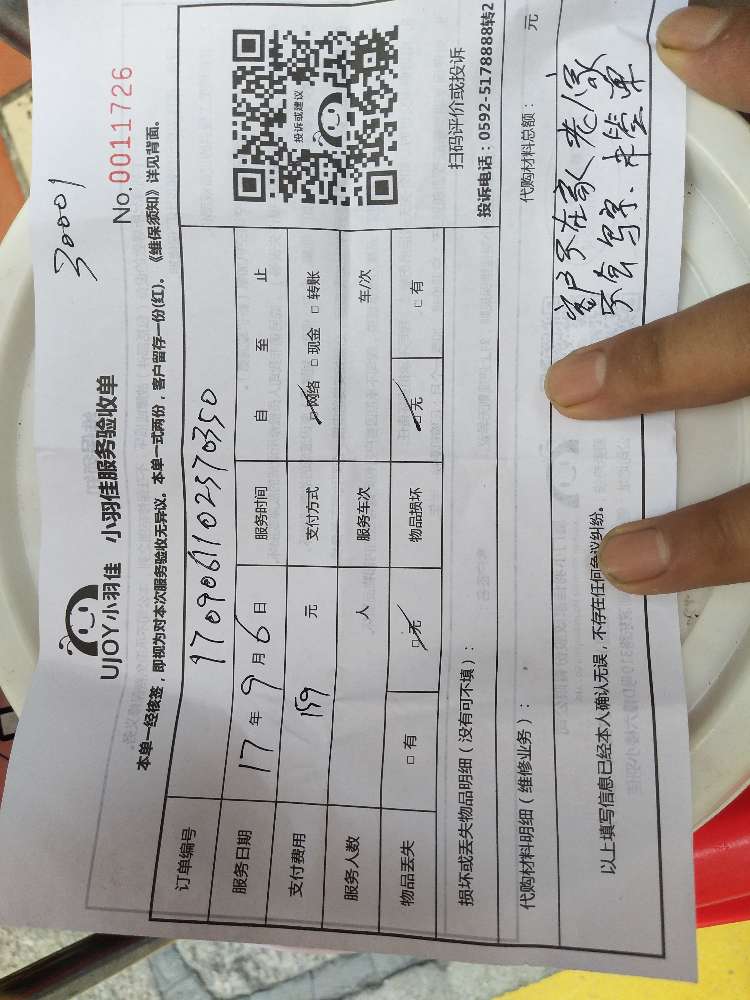 30001
UJOY小羽佳 小羽佳服务验收单
No.0011726
本单一经核签，即视为对本次服务验收无异议。本单一式两份，客户留存一份(红)。《维保须知》详见背面。
订单编号 1709061102370350
服务日期 17年9月6日 服务时间 自 至 止
支付费用 159 元 支付方式 □网络 □现金 □转账
服务人数 人 服务车次 车/次
物品丢失 □有 □无 物品损坏 □无 □有
投诉或建议
扫码评价或投诉
投诉电话：0592-5178888转2
损坏或丢失物品明细（没有可不填）：
代购材料明细（维修业务）： 代购材料总额： 元
客户不在家人老人家
不会写字.未签单
以上填写信息已经本人确认无误，不存在任何争议纠纷。